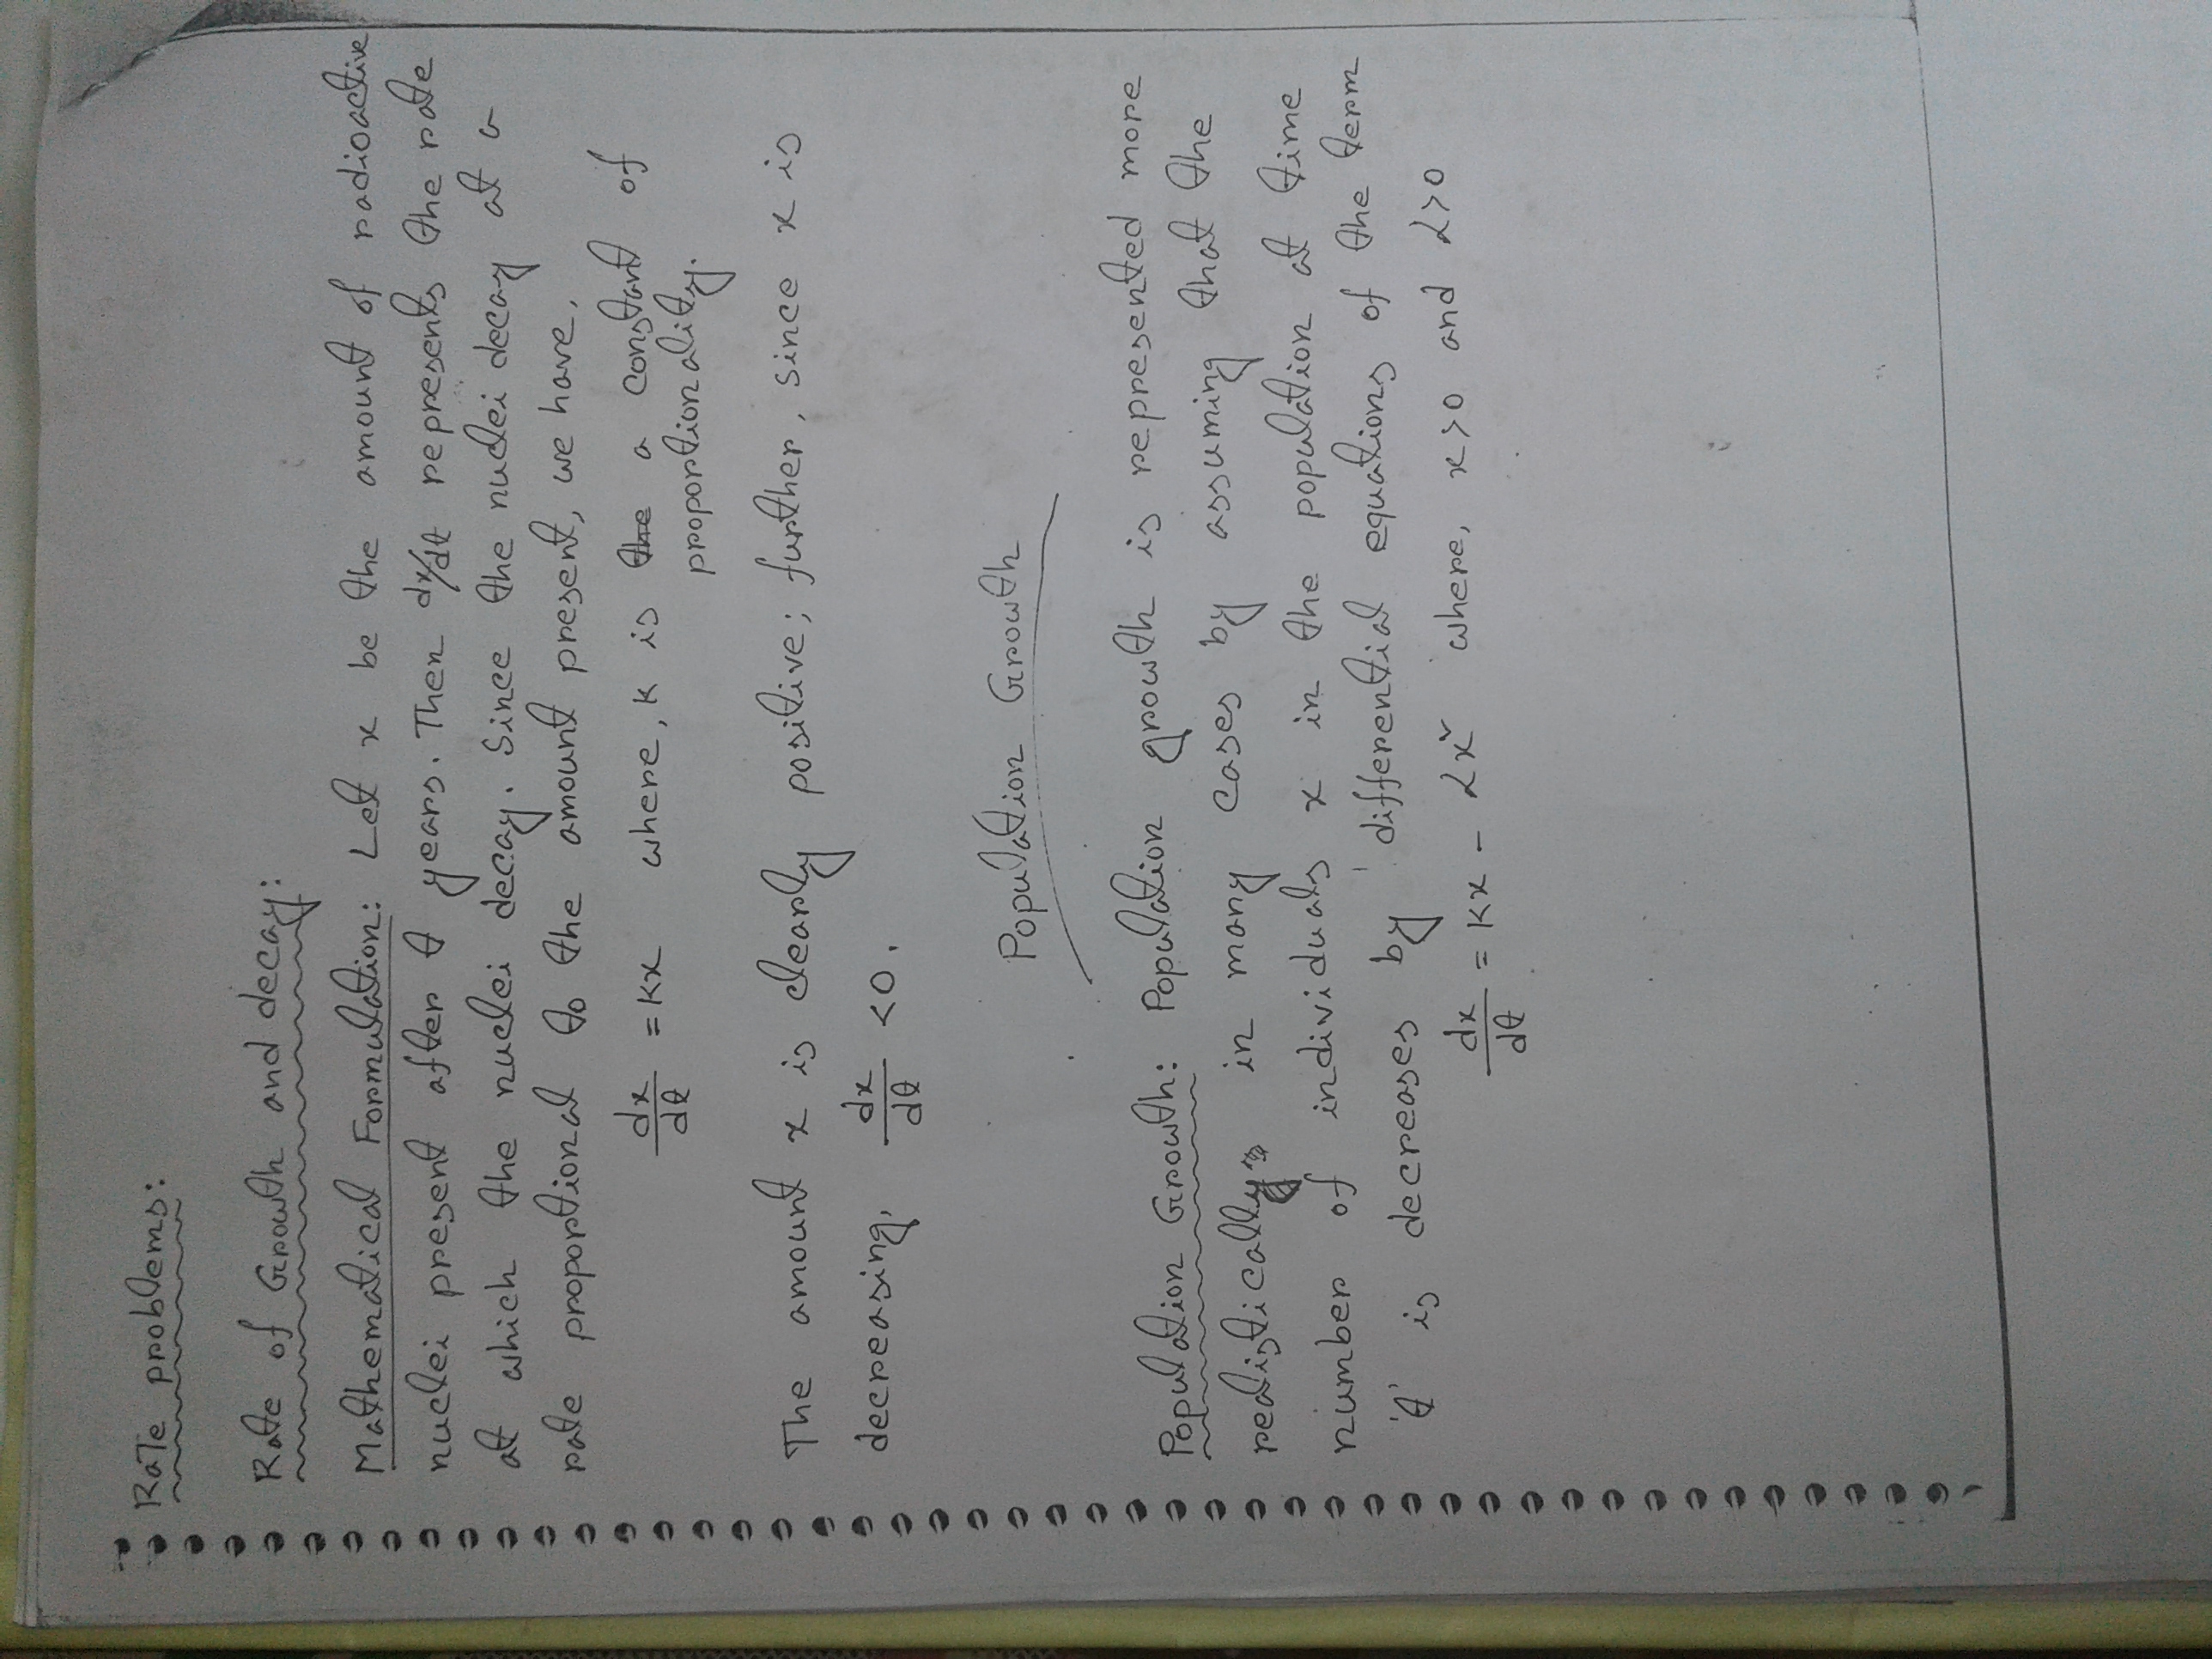 Rate problems:
Rate of Growth and decay:
Mathematical Formulation: Let x be the amount of radioactive
nuclei present after t years. Then dx/dt represents the rate
at which the nuclei decay. Since the nuclei decay at a
rate proportional to the amount present, we have,
dx/dt = Kx where, K is the a constant of
proportionality.
The amount x is clearly positive; further, since x is
decreasing, dx/dt <0.
Population Growth
Population Growth: Population growth is represented more
realistically in many cases by assuming that the
number of individuals x in the population at time
't' is decreases by differential equations of the term
dx/dt = Kx - λx² where, x>0 and λ>0